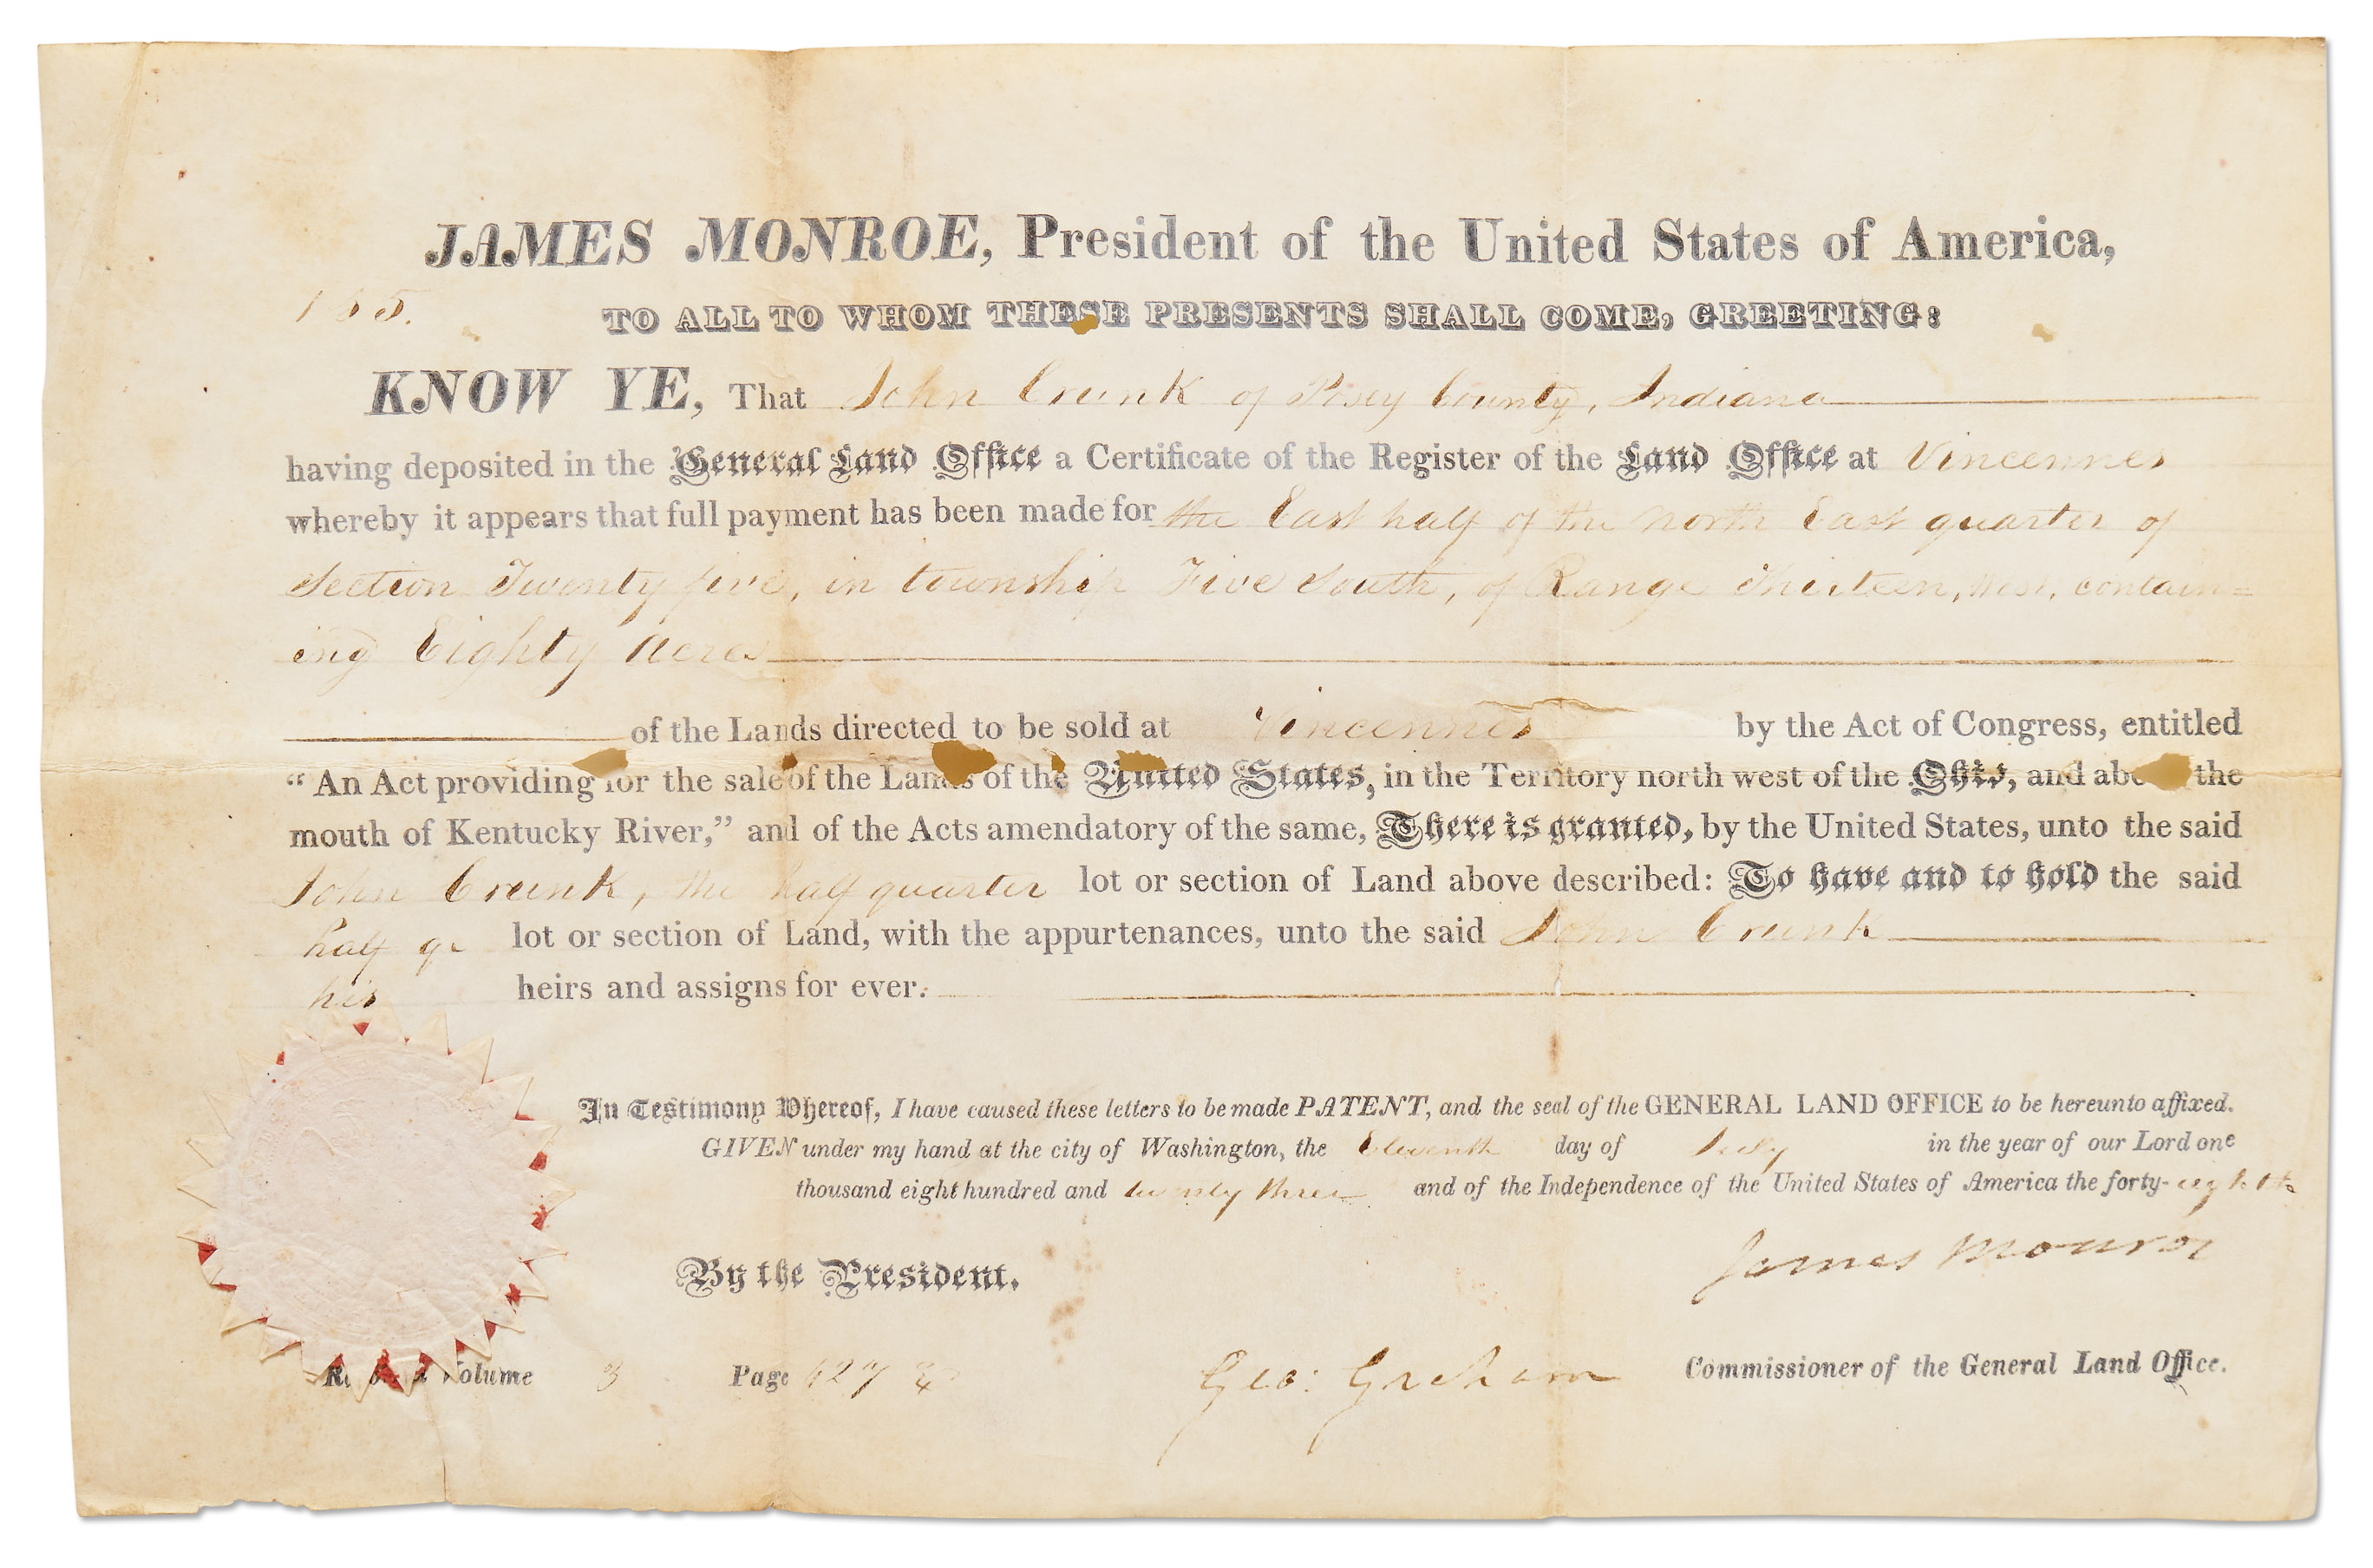 JAMES MONROE, President of the United States of America,
TO ALL TO WHOM THESE PRESENTS SHALL COME, GREETING:
KNOW YE, That John Crunk of Posey County, Indiana
having deposited in the General Land Office a Certificate of the Register of the Land Office at Vincennes
whereby it appears that full payment has been made for the East half of the north East quarter of
Section Twenty five, in township Five South, of Range Thirteen, West, contain=
ing Eighty Acres
of the Lands directed to be sold at Vincennes by the Act of Congress, entitled
“An Act providing for the sale of the Lands of the United States, in the Territory north west of the Ohio, and above the
mouth of Kentucky River,” and of the Acts amendatory of the same, There is granted, by the United States, unto the said
John Crunk, the half quarter lot or section of Land above described: To have and to hold the said
half qr lot or section of Land, with the appurtenances, unto the said John Crunk
his heirs and assigns for ever.
In Testimony Whereof, I have caused these letters to be made PATENT, and the seal of the GENERAL LAND OFFICE to be hereunto affixed.
GIVEN under my hand at the city of Washington, the Eleventh day of July in the year of our Lord one
thousand eight hundred and twenty three and of the Independence of the United States of America the forty-eighth
James Monroe
By the President.
Geo: Graham Commissioner of the General Land Office.
Volume 3 Page